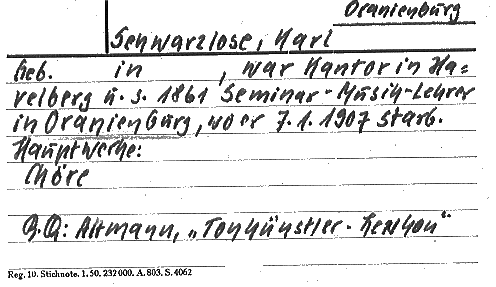 Oranienburg
Schwarzlose, Karl
Geb. in , war Kantor in Ha=
velberg u. s. 1861 Seminar-Musik-Lehrer
in Oranienburg, wo er 7.1.1907 starb.
Hauptwerke:
Chöre
Altmann, „Tonkünstler-Lexikon“
Reg. 10. Stichnote. 1. 50. 232 000. A. 803. S. 4062